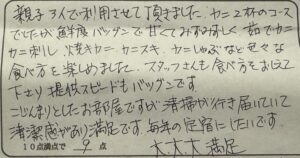 親子3人で利用させて頂きました。カニ2杯のコース
でしたが鮮度バツグンで甘くてみずみずしく茹でカニ
カニ刺し、焼きカニ、カニスキ、カニしゃぶなど色々な
食べ方を楽しめました。スタッフさんも食べ方をお伝えて
下さり提供スピードもバツグンです
こじんまりとしたお部屋ですが清掃が行き届いていて
清潔感があり満足です。毎年の定宿にしたいです
10点満点で 9 点 大大大満足